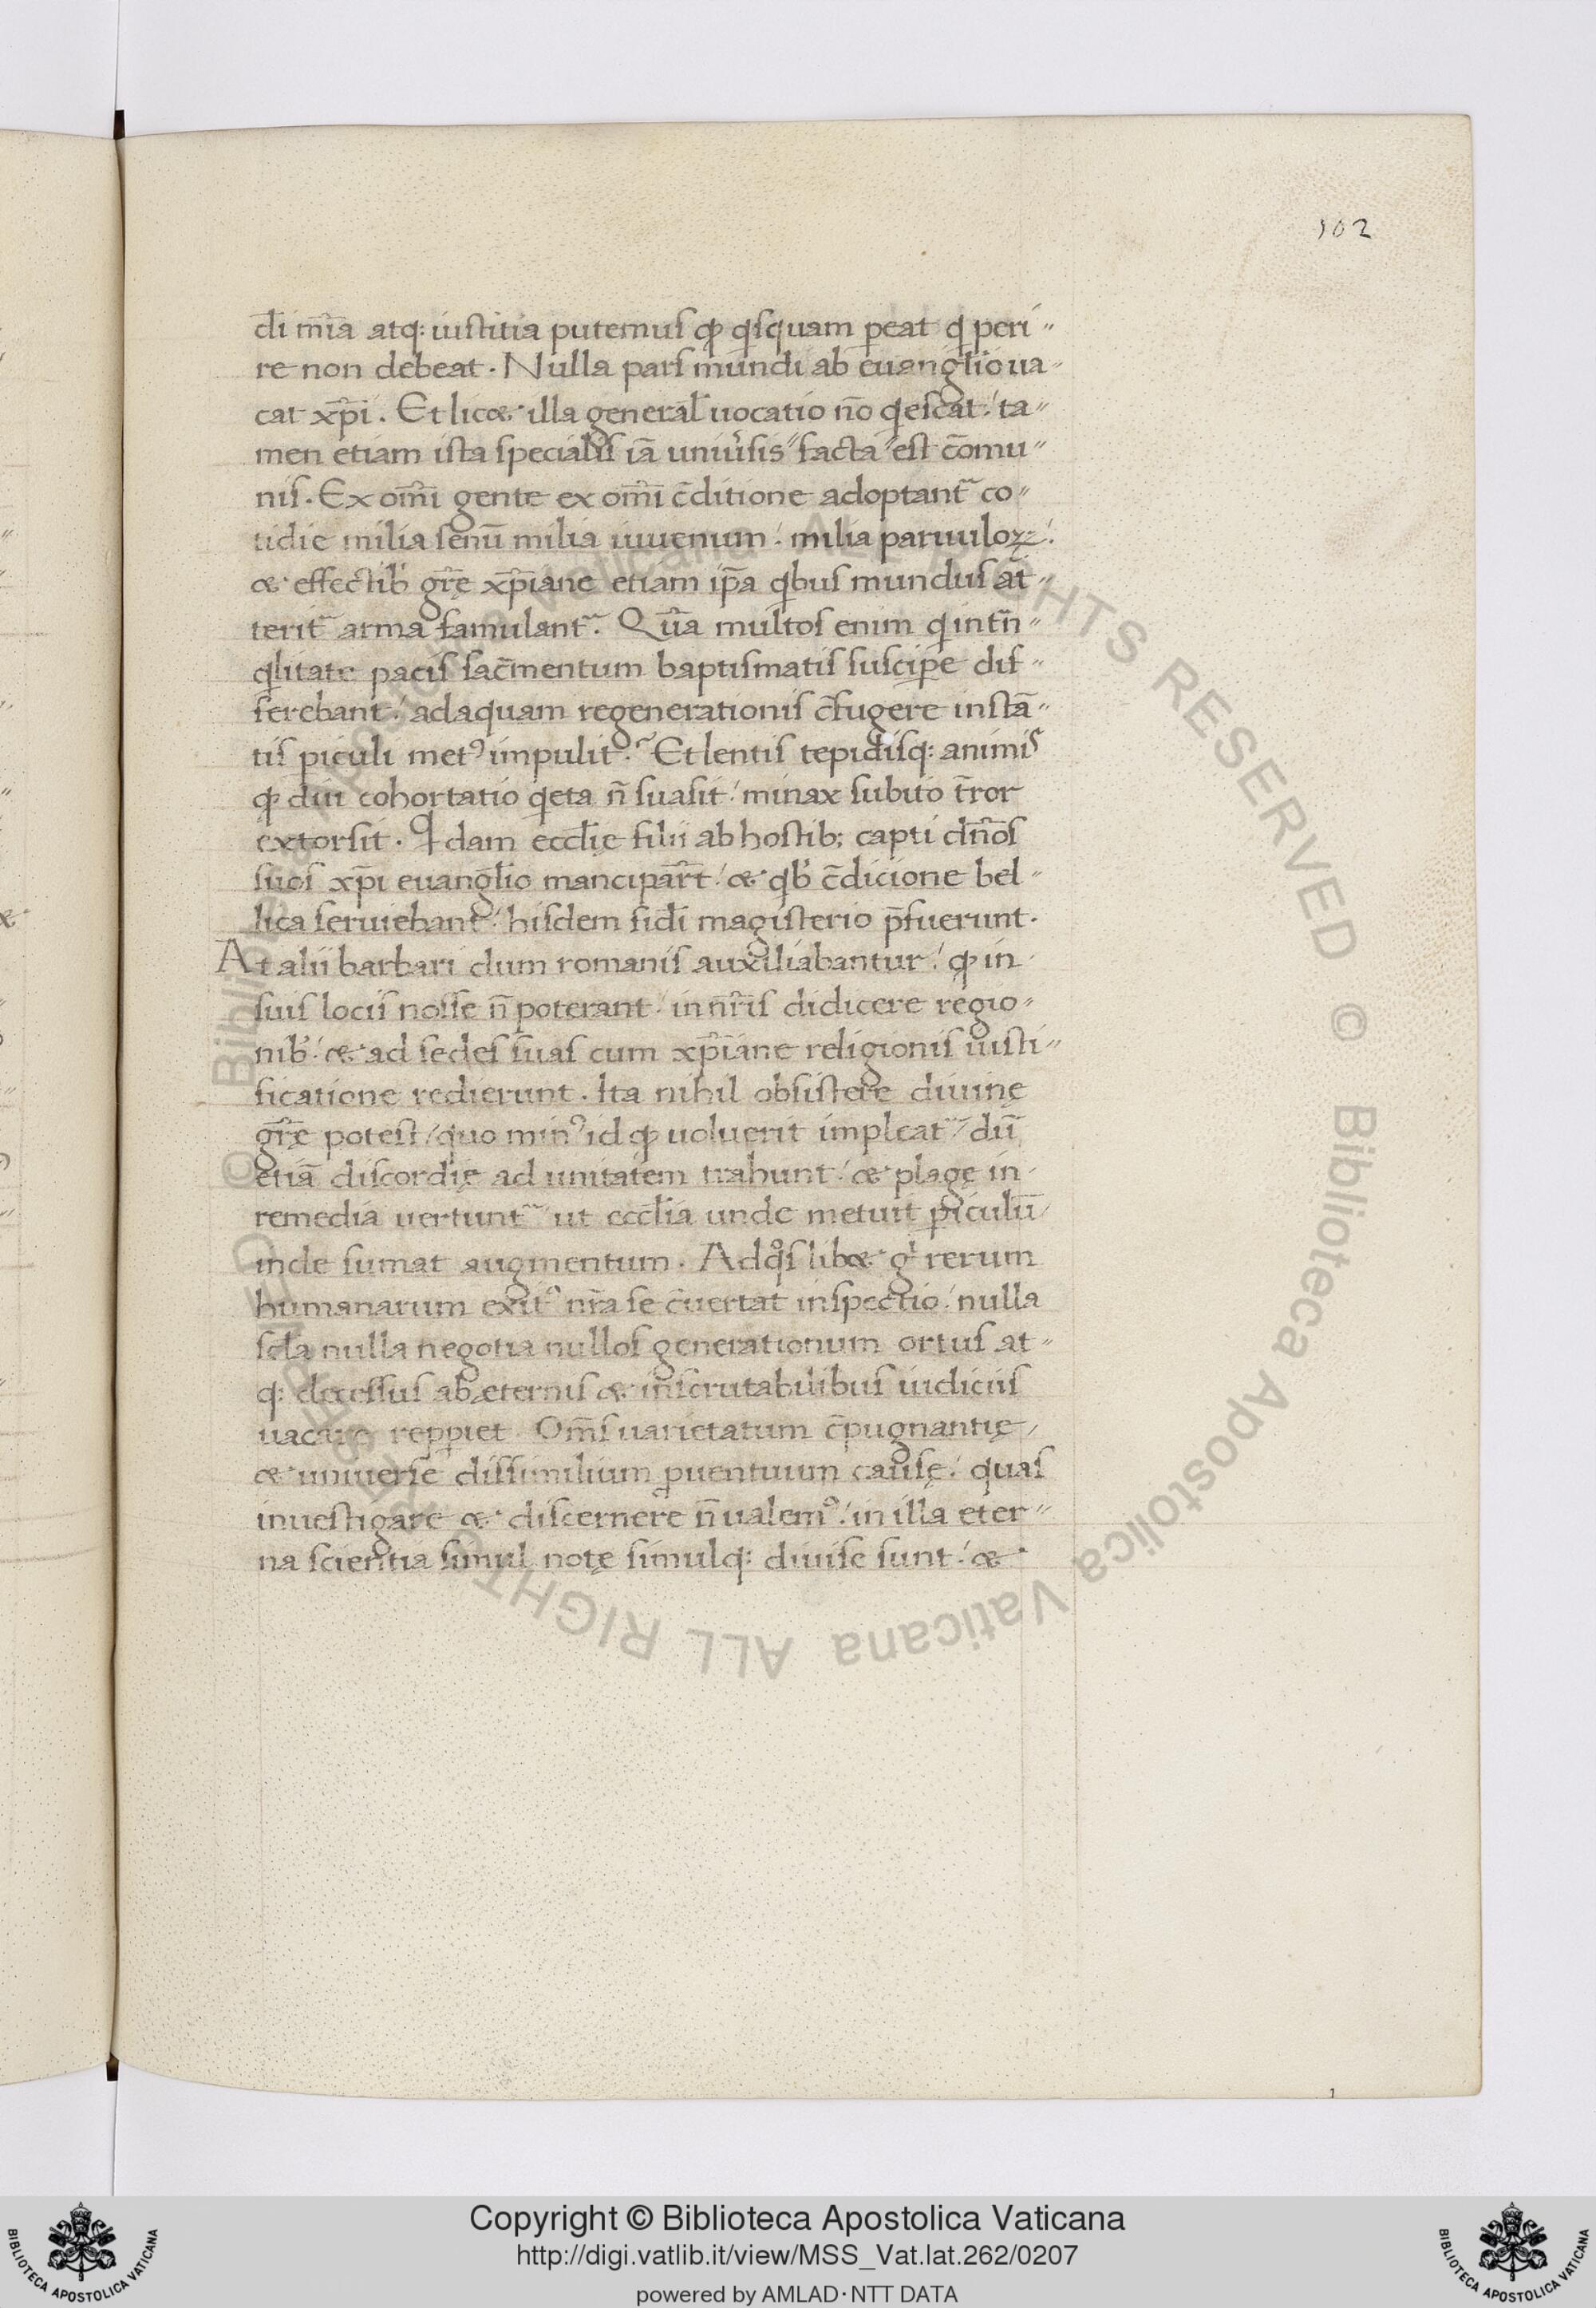 102
d̄i m̄ia atq: iustitia putemus qđ qisquam ꝑeat qi peri〃
re non debeat. Nulla pars mundi ab euangl̄io ua〃
cat xp̄i. Et licæ illa general̄ uocatio n̄o qiescat! ta〃
men etiam ista specialis iā uniu̓sis facta est c̄omu〃
nis. Ex om̄i gente ex om̄i c̄ditione adoptant᷑ co〃
tidie milia senū milia iuuenum! milia paruuloꝝ!
æ effectib; gr̄ę xp̄iane etiam ip̄a qibus mundus at̄〃
terit᷑ arma famulant᷑. Qūa multos enim qi in tn̄〃
qilitate pacis sac̄mentum baptismatis suscipe dif〃
ferebant! ad aquam regenerationis c̄fugere instā〃
tis ꝑiculi metꝰ impulit. Et lentis tepidisq: animis
qđ diu cohortatio qieta n̄ suasit! minax subito t̄ror
extorsit. Qidam eccl̄ię filii ab hostib; capti dn̄os
suos xp̄i euangl̄io mancipar̄t! æ qib; c̄dicione bel〃
lica seruiebant! hisdem fidi magisterio p̄fuerunt.
At alii barbari dum romanis auxiliabantur! qđ in
suis locis nosse n̄ poterant! in nr̄is didicere regio〃
nib;! æ ad sedes suas cum xp̄iane religionis iusti〃
ficatione redierunt. Ita nihil obsistere diuinę
gr̄ę potest! quo minꝰ id qđ uoluerit impleat᷑! dū
etiā discordię ad unitatem trahunt! æ plagę in
remedia uertunt᷑ ut eccl̄ia unde metuit ꝑiculū
inde sumat augmentum. Ad qos libæ gi rerum
humanarum exitꝰ nr̄a se c̄uertat inspectio! nulla
scl̄a nulla negotia nullos generationum ortus at〃
q: decessus ab æternis æ inscrutabilibus iudiciis
uacare repꝑiet. Om̄s uarietatum c̄pugnantię
æ uniuerse dissimilium ꝓuentuum causę! quas
inuestigare æ discernere n̄ ualemꝰ! in illa eter〃
na scientia simul notę simulq: diuise sunt! æ
1
© Biblioteca Apostolica Vaticana ALL RIGHTS RESERVED © Biblioteca Apostolica Vaticana ALL RIGHTS RESERVED
Copyright © Biblioteca Apostolica Vaticana
http://digi.vatlib.it/view/MSS_Vat.lat.262/0207
powered by AMLAD·NTT DATA
BIBLIOTECA APOSTOLICA VATICANA
BIBLIOTECA APOSTOLICA VATICANA